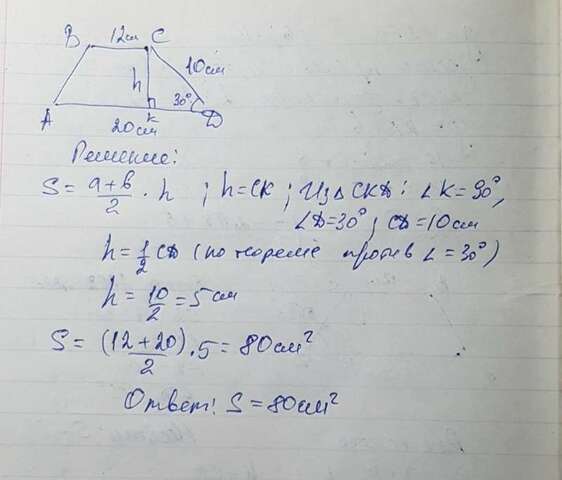 B 12см C
10см
h
30°
A K D
20см
Решение:
S = a+b/2 · h ; h=CK ; Из △CKD: ∠K=90°,
∠D=30° ; CD=10см
h = 1/2 CD (по теореме против ∠=30°)
h = 10/2 = 5 см
S = (12+20)/2 · 5 = 80см²
Ответ: S = 80см²